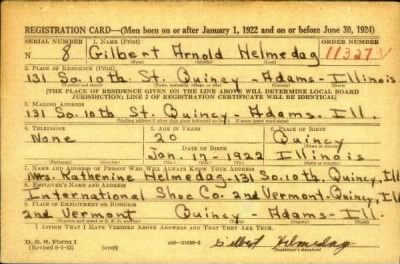 REGISTRATION CARD—(Men born on or after January 1, 1922 and on or before June 30, 1924)
SERIAL NUMBER 1. NAME (Print) ORDER NUMBER
N 8 Gilbert Arnold Helmedag 11327
(First) (Middle) (Last)
2. PLACE OF RESIDENCE (Print)
131 So. 10th. St. Quincy - Adams - Illinois
(Number and street) (Town, township, village, or city) (County) (State)
[THE PLACE OF RESIDENCE GIVEN ON THE LINE ABOVE WILL DETERMINE LOCAL BOARD JURISDICTION; LINE 2 OF REGISTRATION CERTIFICATE WILL BE IDENTICAL]
3. MAILING ADDRESS
131 So. 10th St. Quincy - Adams. Ill.
4. TELEPHONE 5. AGE IN YEARS 6. PLACE OF BIRTH
None 20 Quincy
DATE OF BIRTH
Jan. 17 - 1922 Illinois
7. NAME AND ADDRESS OF PERSON WHO WILL ALWAYS KNOW YOUR ADDRESS
Mrs. Katherine Helmedag. 131 So. 10th. Quincy, Ill
8. EMPLOYER'S NAME AND ADDRESS
International Shoe Co. 2nd Vermont. Quincy, Ill
9. PLACE OF EMPLOYMENT OR BUSINESS
2nd Vermont Quincy - Adams - Ill.
I AFFIRM THAT I HAVE VERIFIED ABOVE ANSWERS AND THAT THEY ARE TRUE.
D. S. S. Form 1 (over) Gilbert Helmedag
(Registrant's signature)